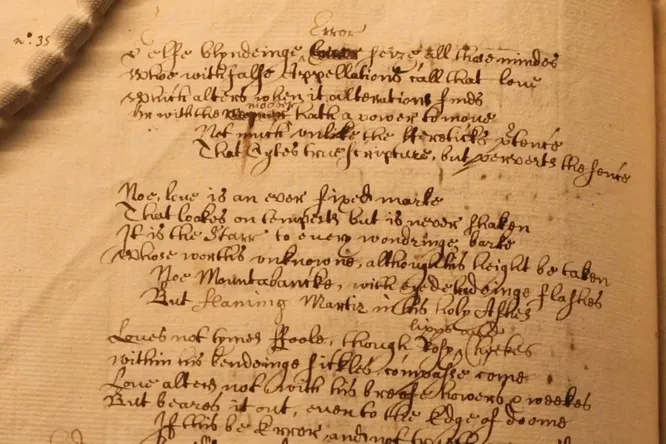 Error
n°. 35
Selfe blyndeinge seize all those mindes
Whoe with false Appellations call that love
Which alters when it alterations finds
moover
Or with the hath a power to move
Not much unlike the Heretick's p'tence
That Cytes true scripture, but perverts the sence
Noe, love is an ever fixed marke
That lookes on tempests but is never shaken
It is the Starr to every wondringe barke
Whose worth's unknowne, although his height be taken
Noe Mountabancke, with eyedeludeinge flashes
But flameing Martir in his holy Ashes
lipps and
Loves not tymes Foole, though Rosy Cheekes
within his bendeinge sickles compasse come
Love alters not with his breefe howers & weekes
But beares it out, even to the Edge of doome
If this be Error, and not